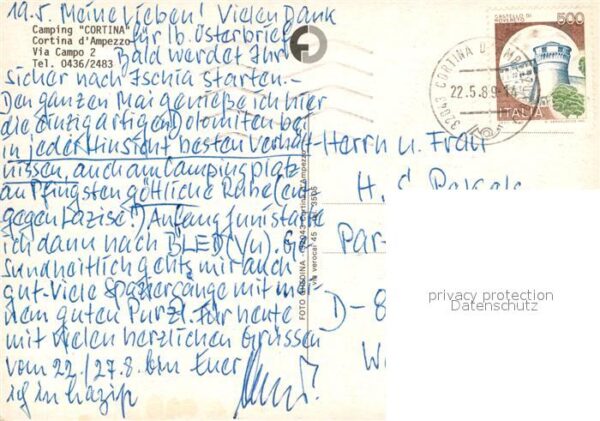 19.5. Meine Lieben! Vielen Dank
Camping "CORTINA"
Cortina d'Ampezzo
Via Campo 2
Tel. 0436/2483
für lb. Osterbrief
Bald werdet Ihr
sicher nach Ischia starten.-
Den ganzen Mai genieße ich hier
die einzigartigen Dolomiten bei
in jeder Hinsicht besten Verhält-
nissen, auch am Campingplatz
an Pfingsten göttliche Ruhe (ent-
gegen Lazise!) Anfang Juni starte
ich dann nach BLED (Yu). Ge-
sundheitlich gehts mir auch
gut-Viele Spaziergänge mit mei-
nem guten Purzl. Für heute
mit vielen herzlichen Grüssen
vom 22./27.8. bin Euer
ich in Lazise
FOTO GHEDINA - 32043 Cortina d'Ampezzo
via verocai 45
CASTELLO DI
ROVERETO
500
ITALIA
32043 CORTINA D'
22.5.89-14
Herrn u. Frau
H.
Par-
D-8
W
privacy protection
Datenschutz